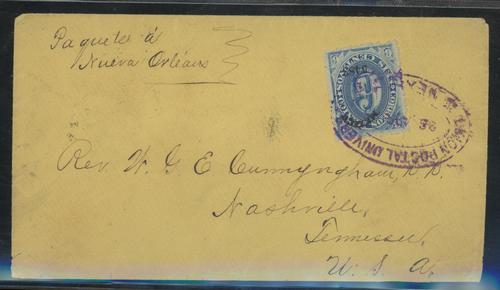 Paquete á
Nueva Orléans
UNION POSTAL UNIVERS
Rev. W. G. E. Cunnyngham, D.D.
Nashville,
Tennessee,
U. S. A.